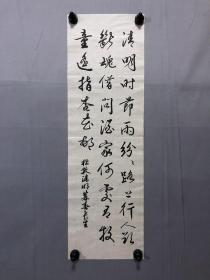 清明时节雨纷纷路上行人欲
断魂借问酒家何处有牧
童遥指杏花村